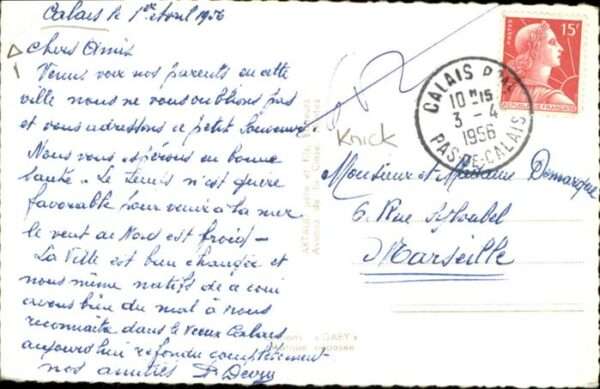 Calais le 1er Avril 1956
Chers Amis
Venus voir nos parents en cette
ville nous ne vous oublions pas
et vous adressons ce petit souvenir
Nous vous espérons en bonne
santé. Le temps n'est guère
favorable pour venir à la mer
le vent du Nord est froid -
La Ville est bien changée et
nous même natifs de ce coin
avons bien du mal à nous
reconnaitre dans le vieux Calais
aujourd'hui refondu complètement
nos amitiés
Knick
CALAIS PPAL
10 H 15
3 - 4
1956
PAS-DE-CALAIS
POSTES
15F
REPUBLIQUE FRANCAISE
Monsieur et Madame Demarque
6 Rue St
Marseille
"GABY"